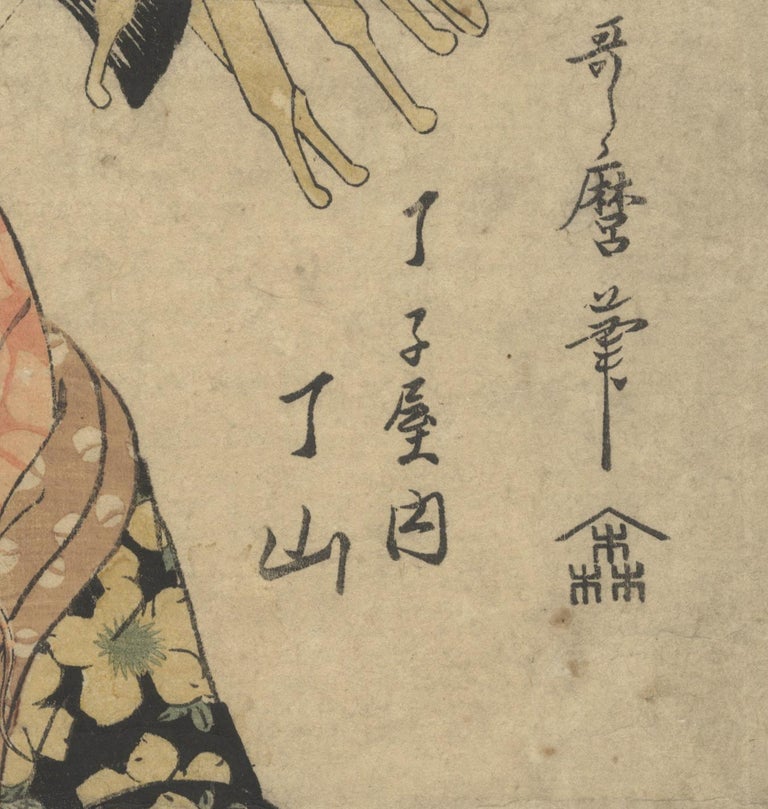 哥麿筆
森
丁子屋内
丁山